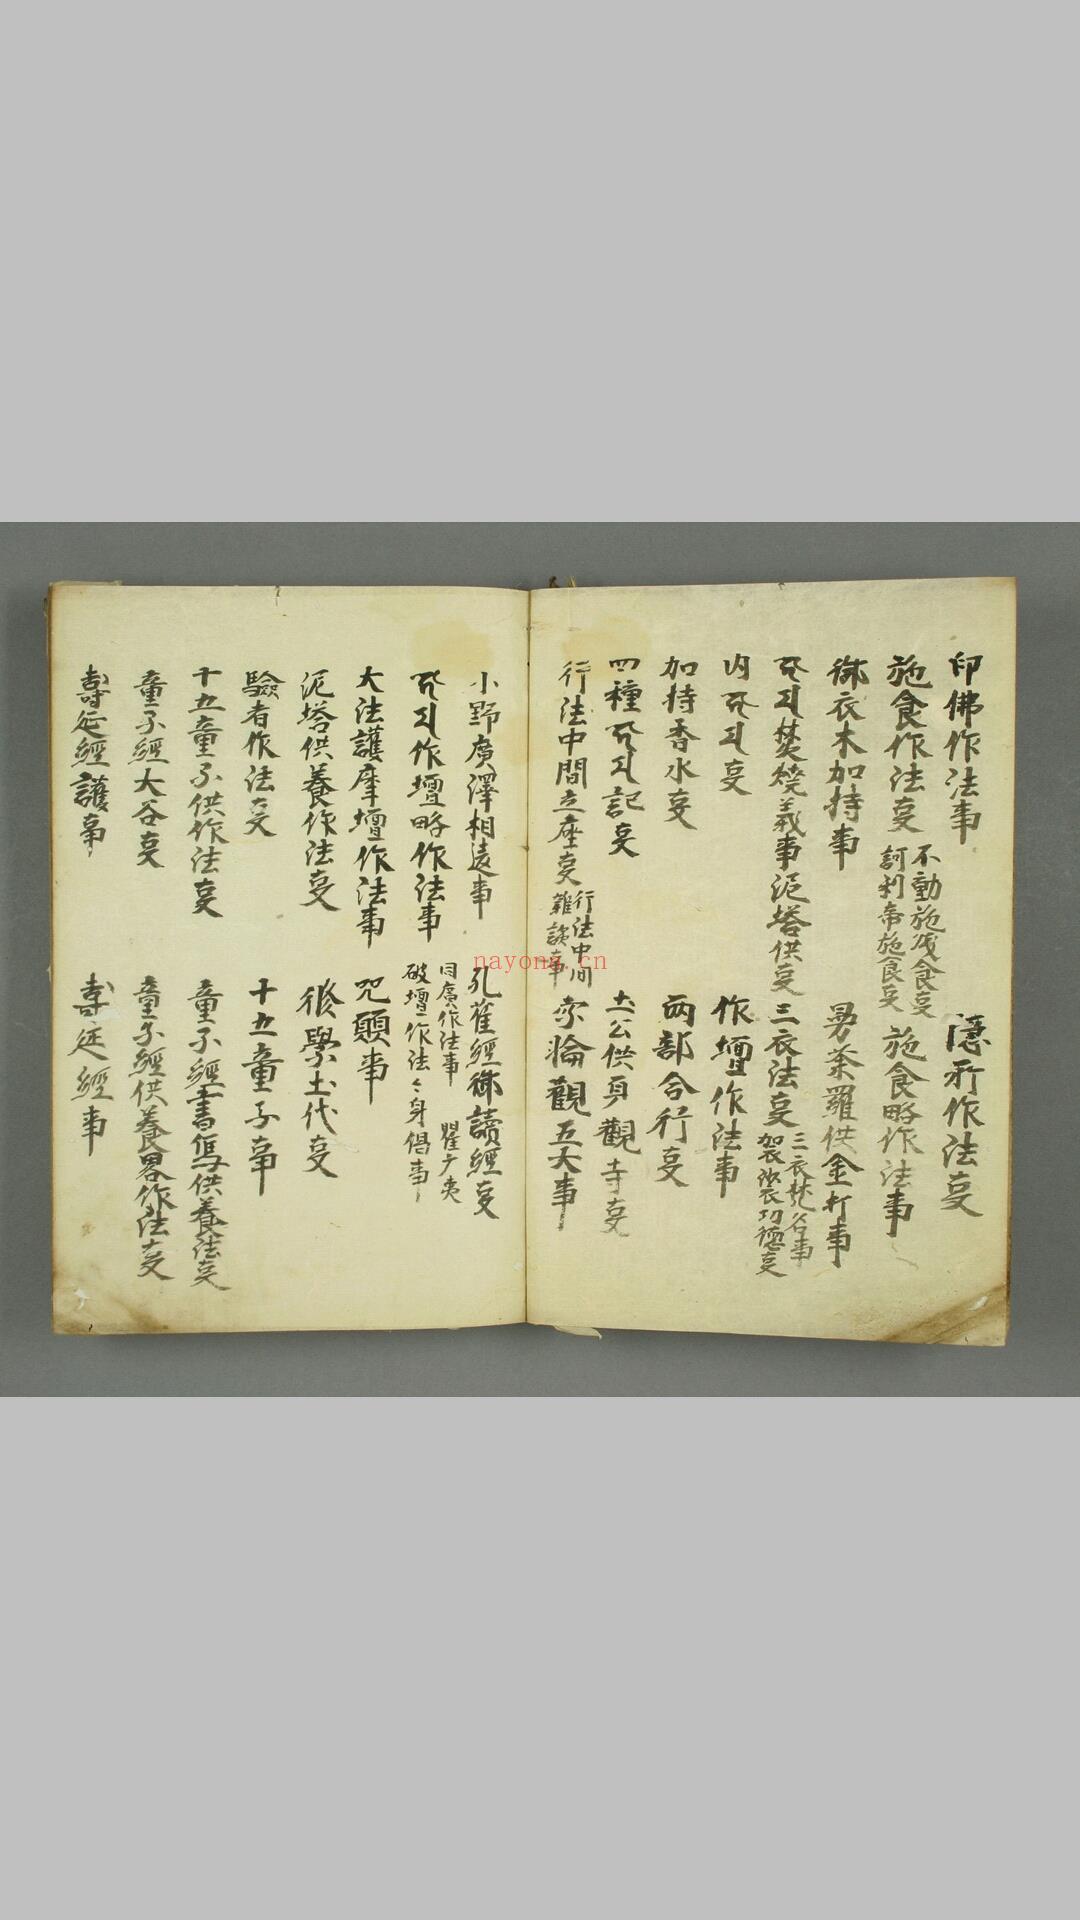 印佛作法事
隱形作法㕝
施食作法㕝
不動施残食㕝
訶利帝施食㕝
施食略作法事
御衣木加持事
曼荼羅供金打事
𑖮𑖺𑖦焚燒義事
泥塔供㕝
三衣法㕝
三衣梵名事
袈裟功德㕝
内𑖮𑖺𑖦㕝
作壇作法事
加持香水㕝
両部合行㕝
四種𑖮𑖺𑖦記㕝
土公供
觀㕝
行法中間立座㕝
行法中間
雜談事
字輪觀五大事
小野廣澤相違事
孔雀經御讀經㕝
𑖮𑖺𑖦作壇略作法事
同廣作法事
破壇作法
大法護摩壇作法事
咒願事
泥塔供養作法㕝
後學土代㕝
驗者作法㕝
十五童子事
十五童子供作法㕝
童子經書寫供養法㕝
童子經大谷㕝
童子經供養畧作法㕝
壽延經護事
壽延經事
nayona.cn